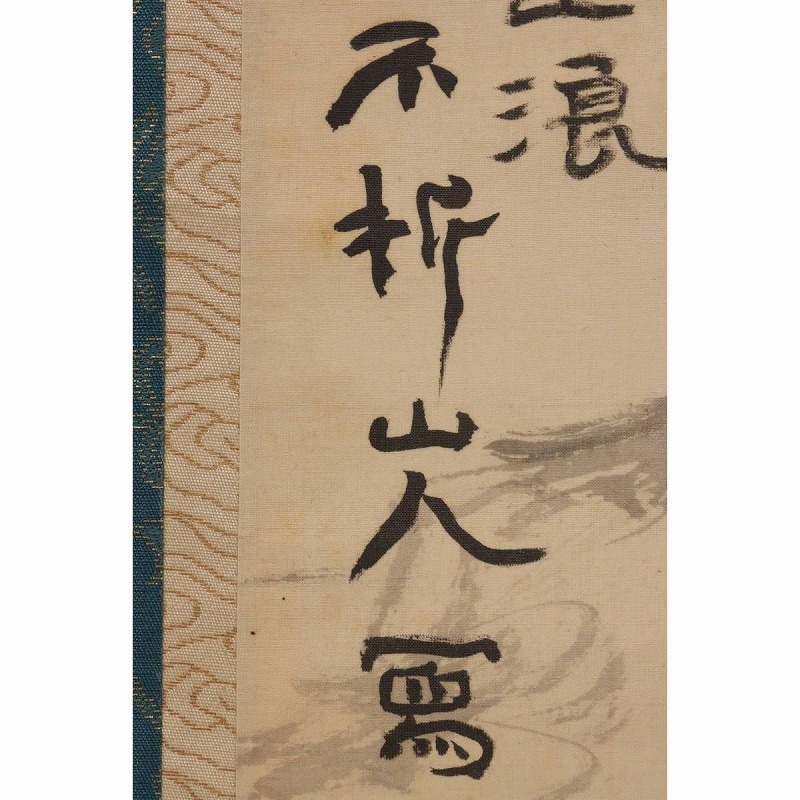 浪
不折山人寫